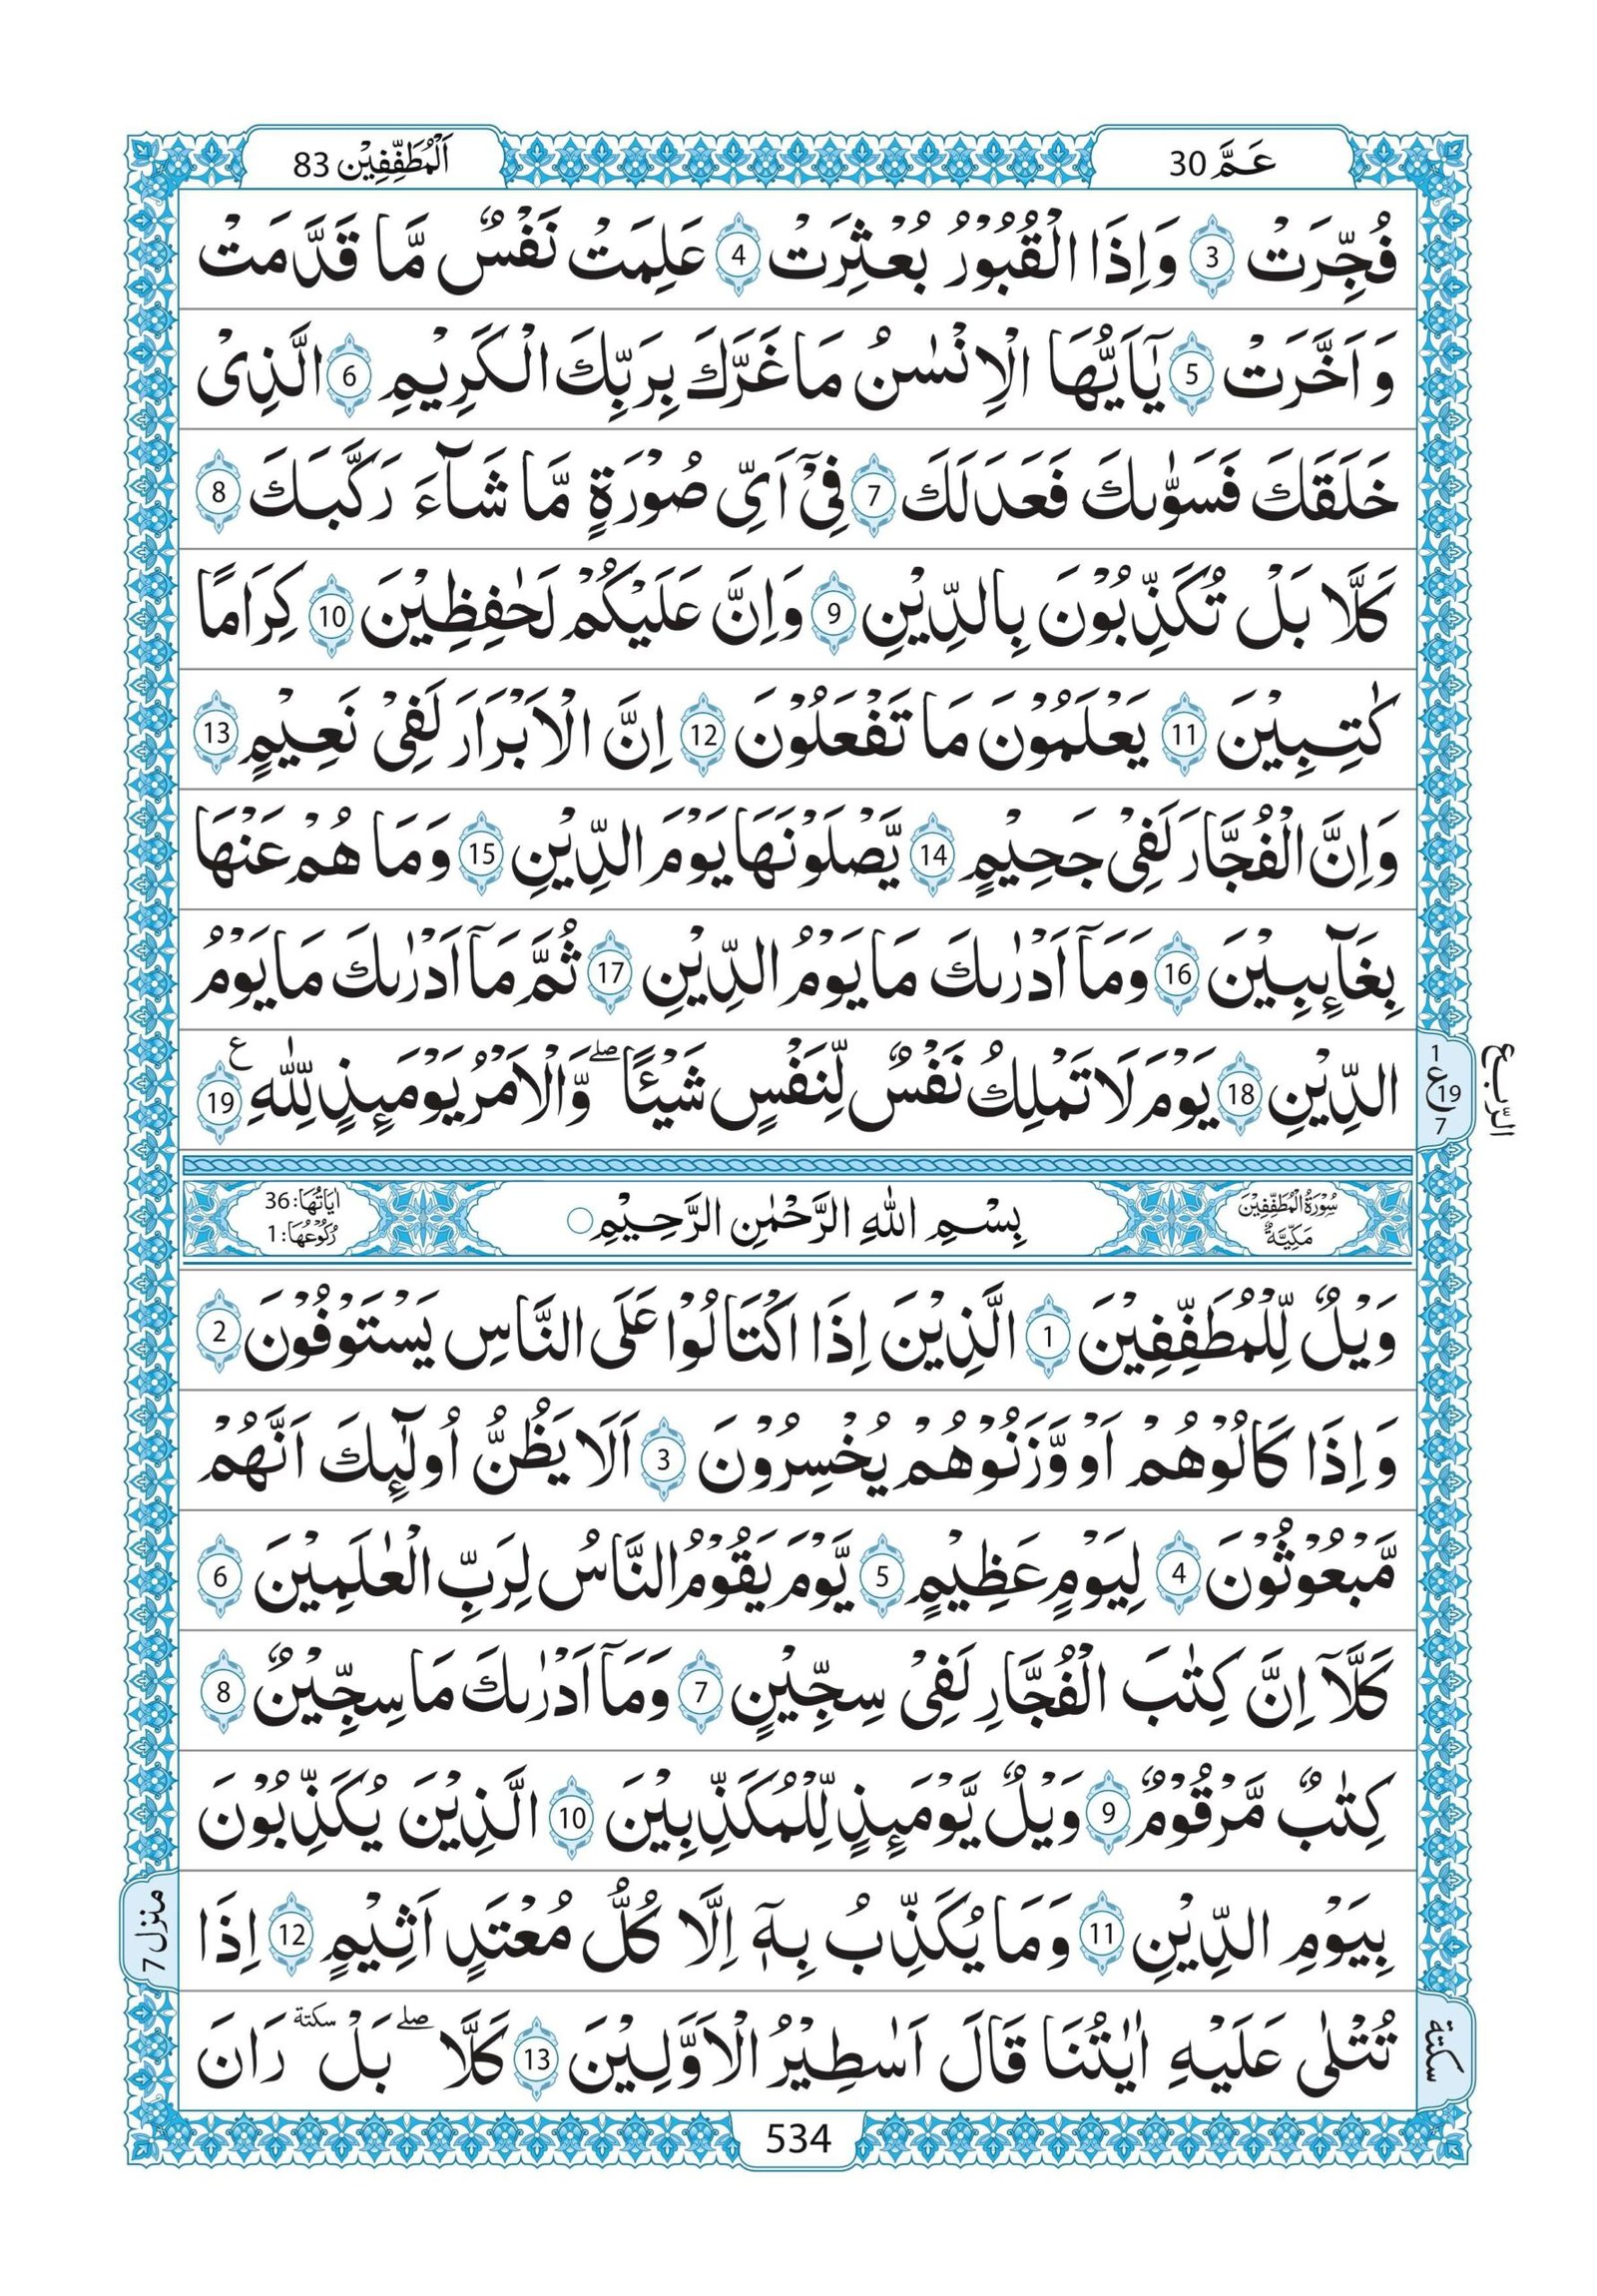 عَمَّ 30
اَلْمُطَفِّفِيْن 83
فُجِّرَتْ 3 وَاِذَا الْقُبُوْرُ بُعْثِرَتْ 4 عَلِمَتْ نَفْسٌ مَّا قَدَّمَتْ
وَ اَخَّرَتْ 5 يٰٓاَيُّهَا الْاِنْسٰنُ مَا غَرَّكَ بِرَبِّكَ الْكَرِيْمِ 6 الَّذِىْ
خَلَقَكَ فَسَوّٰىكَ فَعَدَلَكَ 7 فِىْٓ اَىِّ صُوْرَةٍ مَّا شَآءَ رَكَّبَكَ 8
كَلَّا بَلْ تُكَذِّبُوْنَ بِالدِّيْنِ 9 وَاِنَّ عَلَيْكُمْ لَحٰفِظِيْنَ 10 كِرَامًا
كٰتِبِيْنَ 11 يَعْلَمُوْنَ مَا تَفْعَلُوْنَ 12 اِنَّ الْاَبْرَارَ لَفِىْ نَعِيْمٍ 13
وَاِنَّ الْفُجَّارَ لَفِىْ جَحِيْمٍ 14 يَّصْلَوْنَهَا يَوْمَ الدِّيْنِ 15 وَمَا هُمْ عَنْهَا
بِغَآئِبِيْنَ 16 وَمَآ اَدْرٰىكَ مَا يَوْمُ الدِّيْنِ 17 ثُمَّ مَآ اَدْرٰىكَ مَا يَوْمُ
الدِّيْنِ 18 يَوْمَ لَا تَمْلِكُ نَفْسٌ لِّنَفْسٍ شَيْئًا ۖ وَّالْاَمْرُ يَوْمَئِذٍ لِّلّٰهِ 19 ع
1 ع 19 7
الرّبع
سُوْرَةُ الْمُطَفِّفِيْنَ مَكِّيَّةٌ
بِسْمِ اللّٰهِ الرَّحْمٰنِ الرَّحِيْمِ
اٰيَاتُهَا: 36
رُكُوْعُهَا: 1
وَيْلٌ لِّلْمُطَفِّفِيْنَ 1 الَّذِيْنَ اِذَا اكْتَالُوْا عَلَى النَّاسِ يَسْتَوْفُوْنَ 2
وَ اِذَا كَالُوْهُمْ اَوْ وَّزَنُوْهُمْ يُخْسِرُوْنَ 3 اَلَا يَظُنُّ اُولٰٓئِكَ اَنَّهُمْ
مَّبْعُوْثُوْنَ 4 لِيَوْمٍ عَظِيْمٍ 5 يَّوْمَ يَقُوْمُ النَّاسُ لِرَبِّ الْعٰلَمِيْنَ 6
كَلَّآ اِنَّ كِتٰبَ الْفُجَّارِ لَفِىْ سِجِّيْنٍ 7 وَمَآ اَدْرٰىكَ مَا سِجِّيْنٌ 8
كِتٰبٌ مَّرْقُوْمٌ 9 وَيْلٌ يَّوْمَئِذٍ لِّلْمُكَذِّبِيْنَ 10 الَّذِيْنَ يُكَذِّبُوْنَ
بِيَوْمِ الدِّيْنِ 11 وَمَا يُكَذِّبُ بِهٖٓ اِلَّا كُلُّ مُعْتَدٍ اَثِيْمٍ 12 اِذَا
منزل 7
تُتْلٰى عَلَيْهِ اٰيٰتُنَا قَالَ اَسٰطِيْرُ الْاَوَّلِيْنَ 13 كَلَّا ۖ بَلْ سكتة رَانَ
سكتة
534